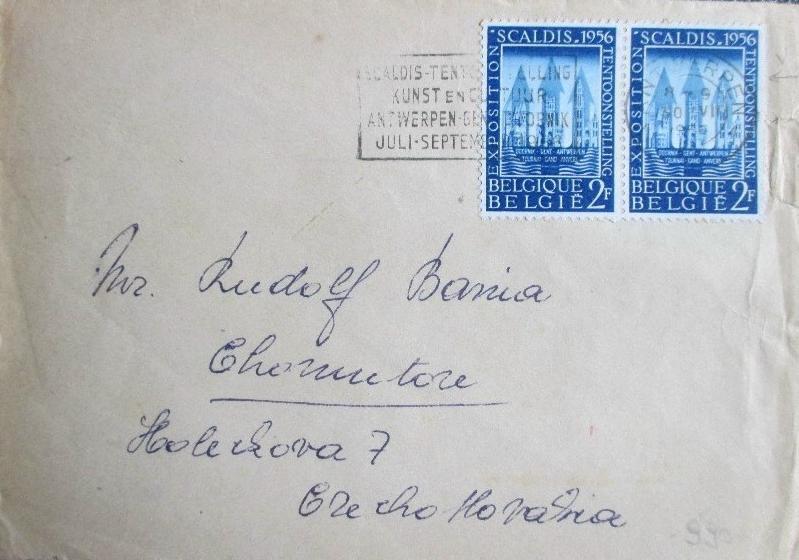 SCALDIS-TENTOONSTELLING
KUNST EN CULTUUR
ANTWERPEN-GENT-DOORNIK
JULI-SEPTEMBER 1956
SCALDIS.1956
EXPOSITION
TENTOONSTELLING
DOORNIK-GENT-ANTWERPEN
TOURNAI-GAND-ANVERS
BELGIQUE
BELGIË 2F
SCALDIS.1956
EXPOSITION
TENTOONSTELLING
DOORNIK-GENT-ANTWERPEN
TOURNAI-GAND-ANVERS
BELGIQUE
BELGIË 2F
ANTWERPEN
VIII
Mr. Rudolf Bania
Chomutore
Holeckova 7
Czechoslovakia